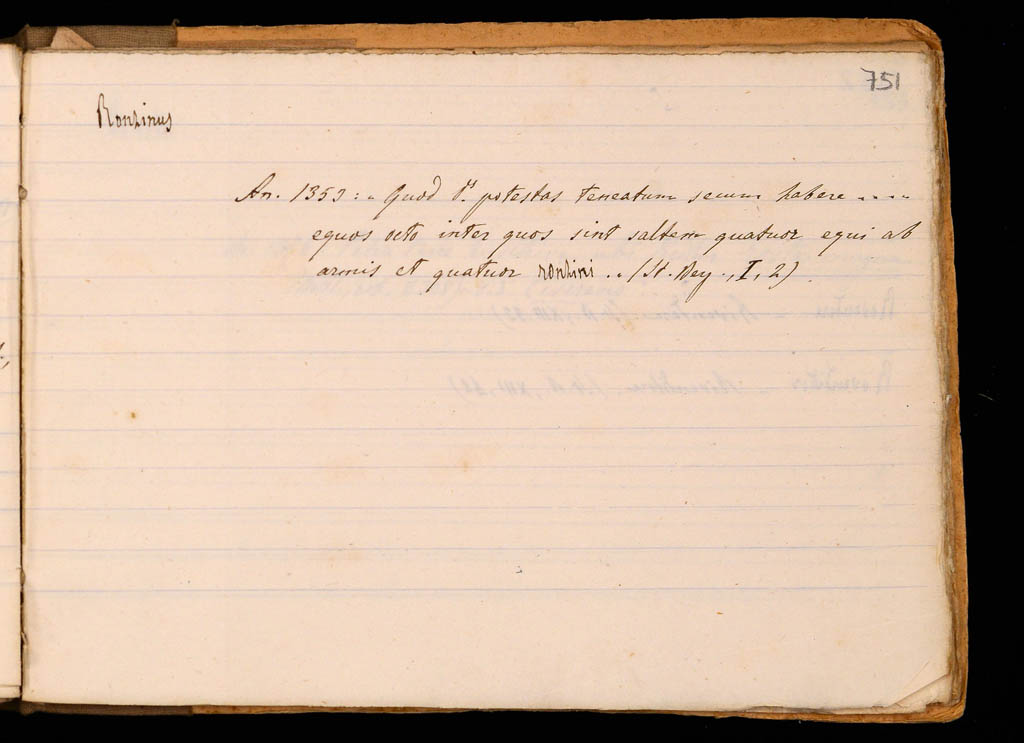 751
Ronzinus
An. 1353: „ Quod d.s potestas teneatum secum habere ....
equos octo inter quos sint saltem quatuor equi ab
armis et quatuor ronzini .. (St. Rey., I, 2)